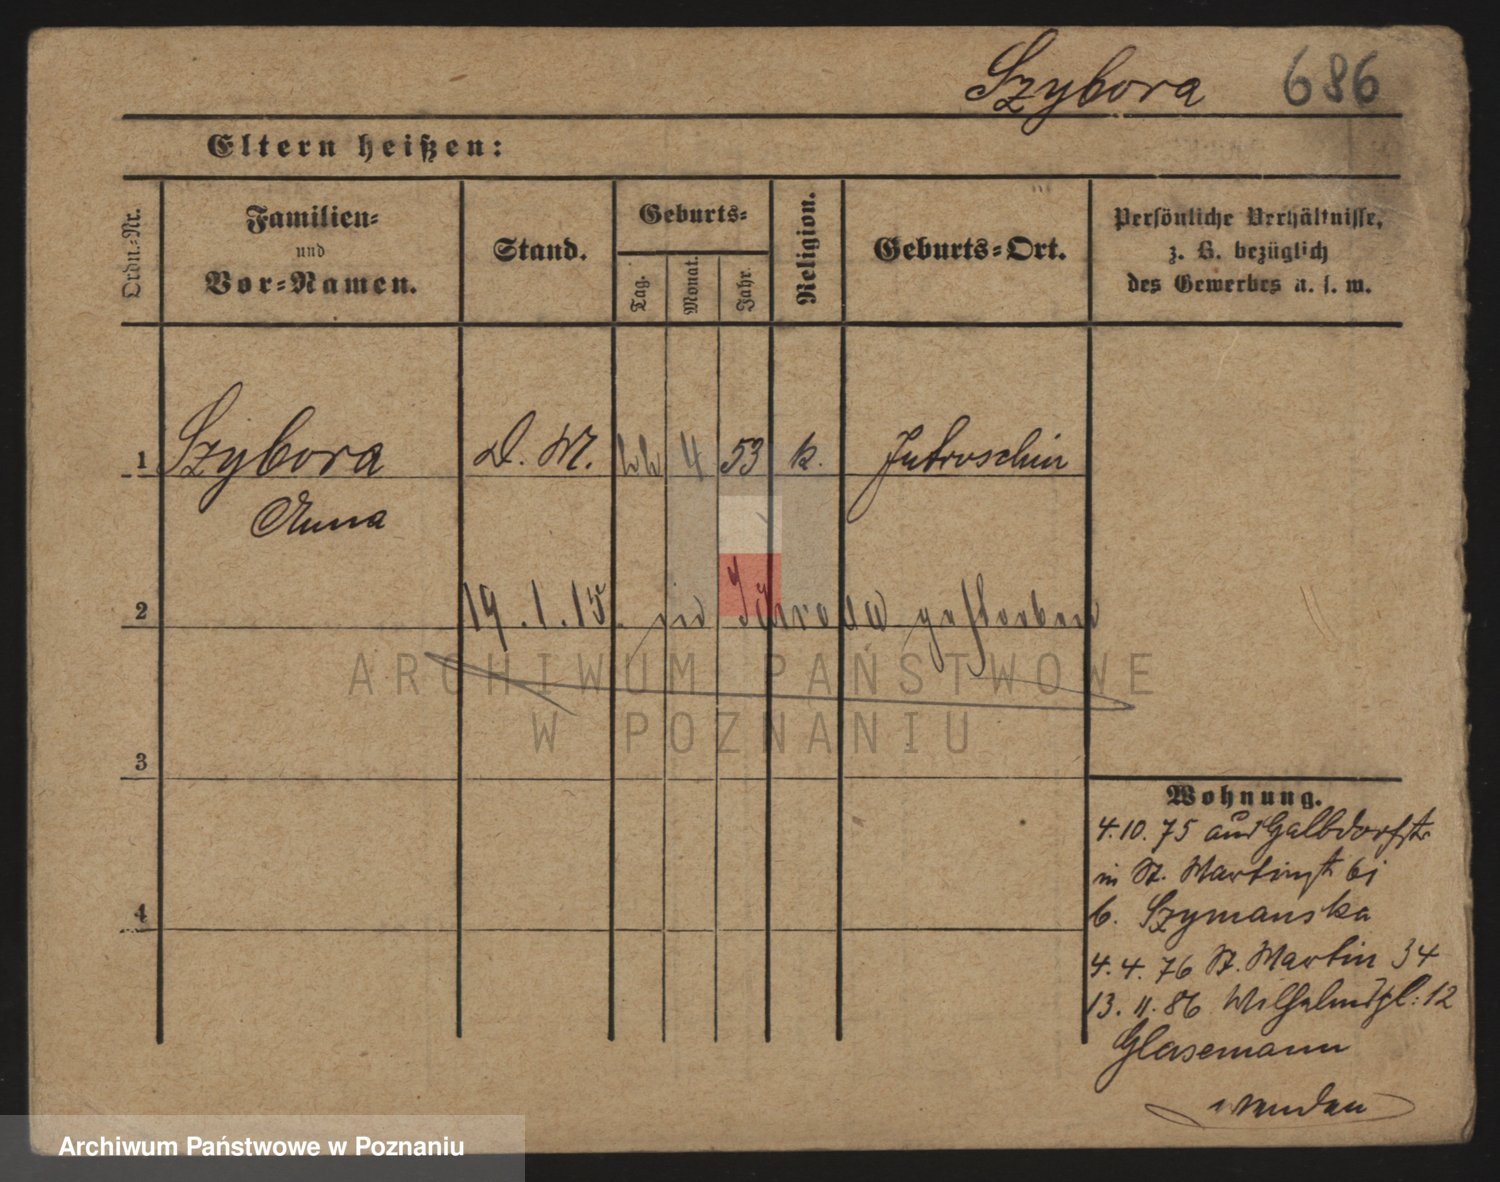 Szybora 686
Eltern heißen:
Ordn.-Nr.
Familien-
und
Vor-Namen.
Stand.
Geburts-
Tag.
Monat.
Jahr.
Religion.
Geburts-Ort.
Persönliche Verhältnisse,
z. B. bezüglich
des Gewerbes u. s. w.
1 Szybora D. M. 4 53 k. Jutroschin
Anna
2 19.1.15. in Schroda gestorben
ARCHIWUM PAŃSTWOWE
W POZNANIU
3
Wohnung.
4.10.75 aus Halbdorfstr
in St. Martinstr bei
b. Szymanska
4.4.76 St. Martin 34
13.11.86 Wilhelmspl: 12
Glasemann
wenden
4
Archiwum Państwowe w Poznaniu